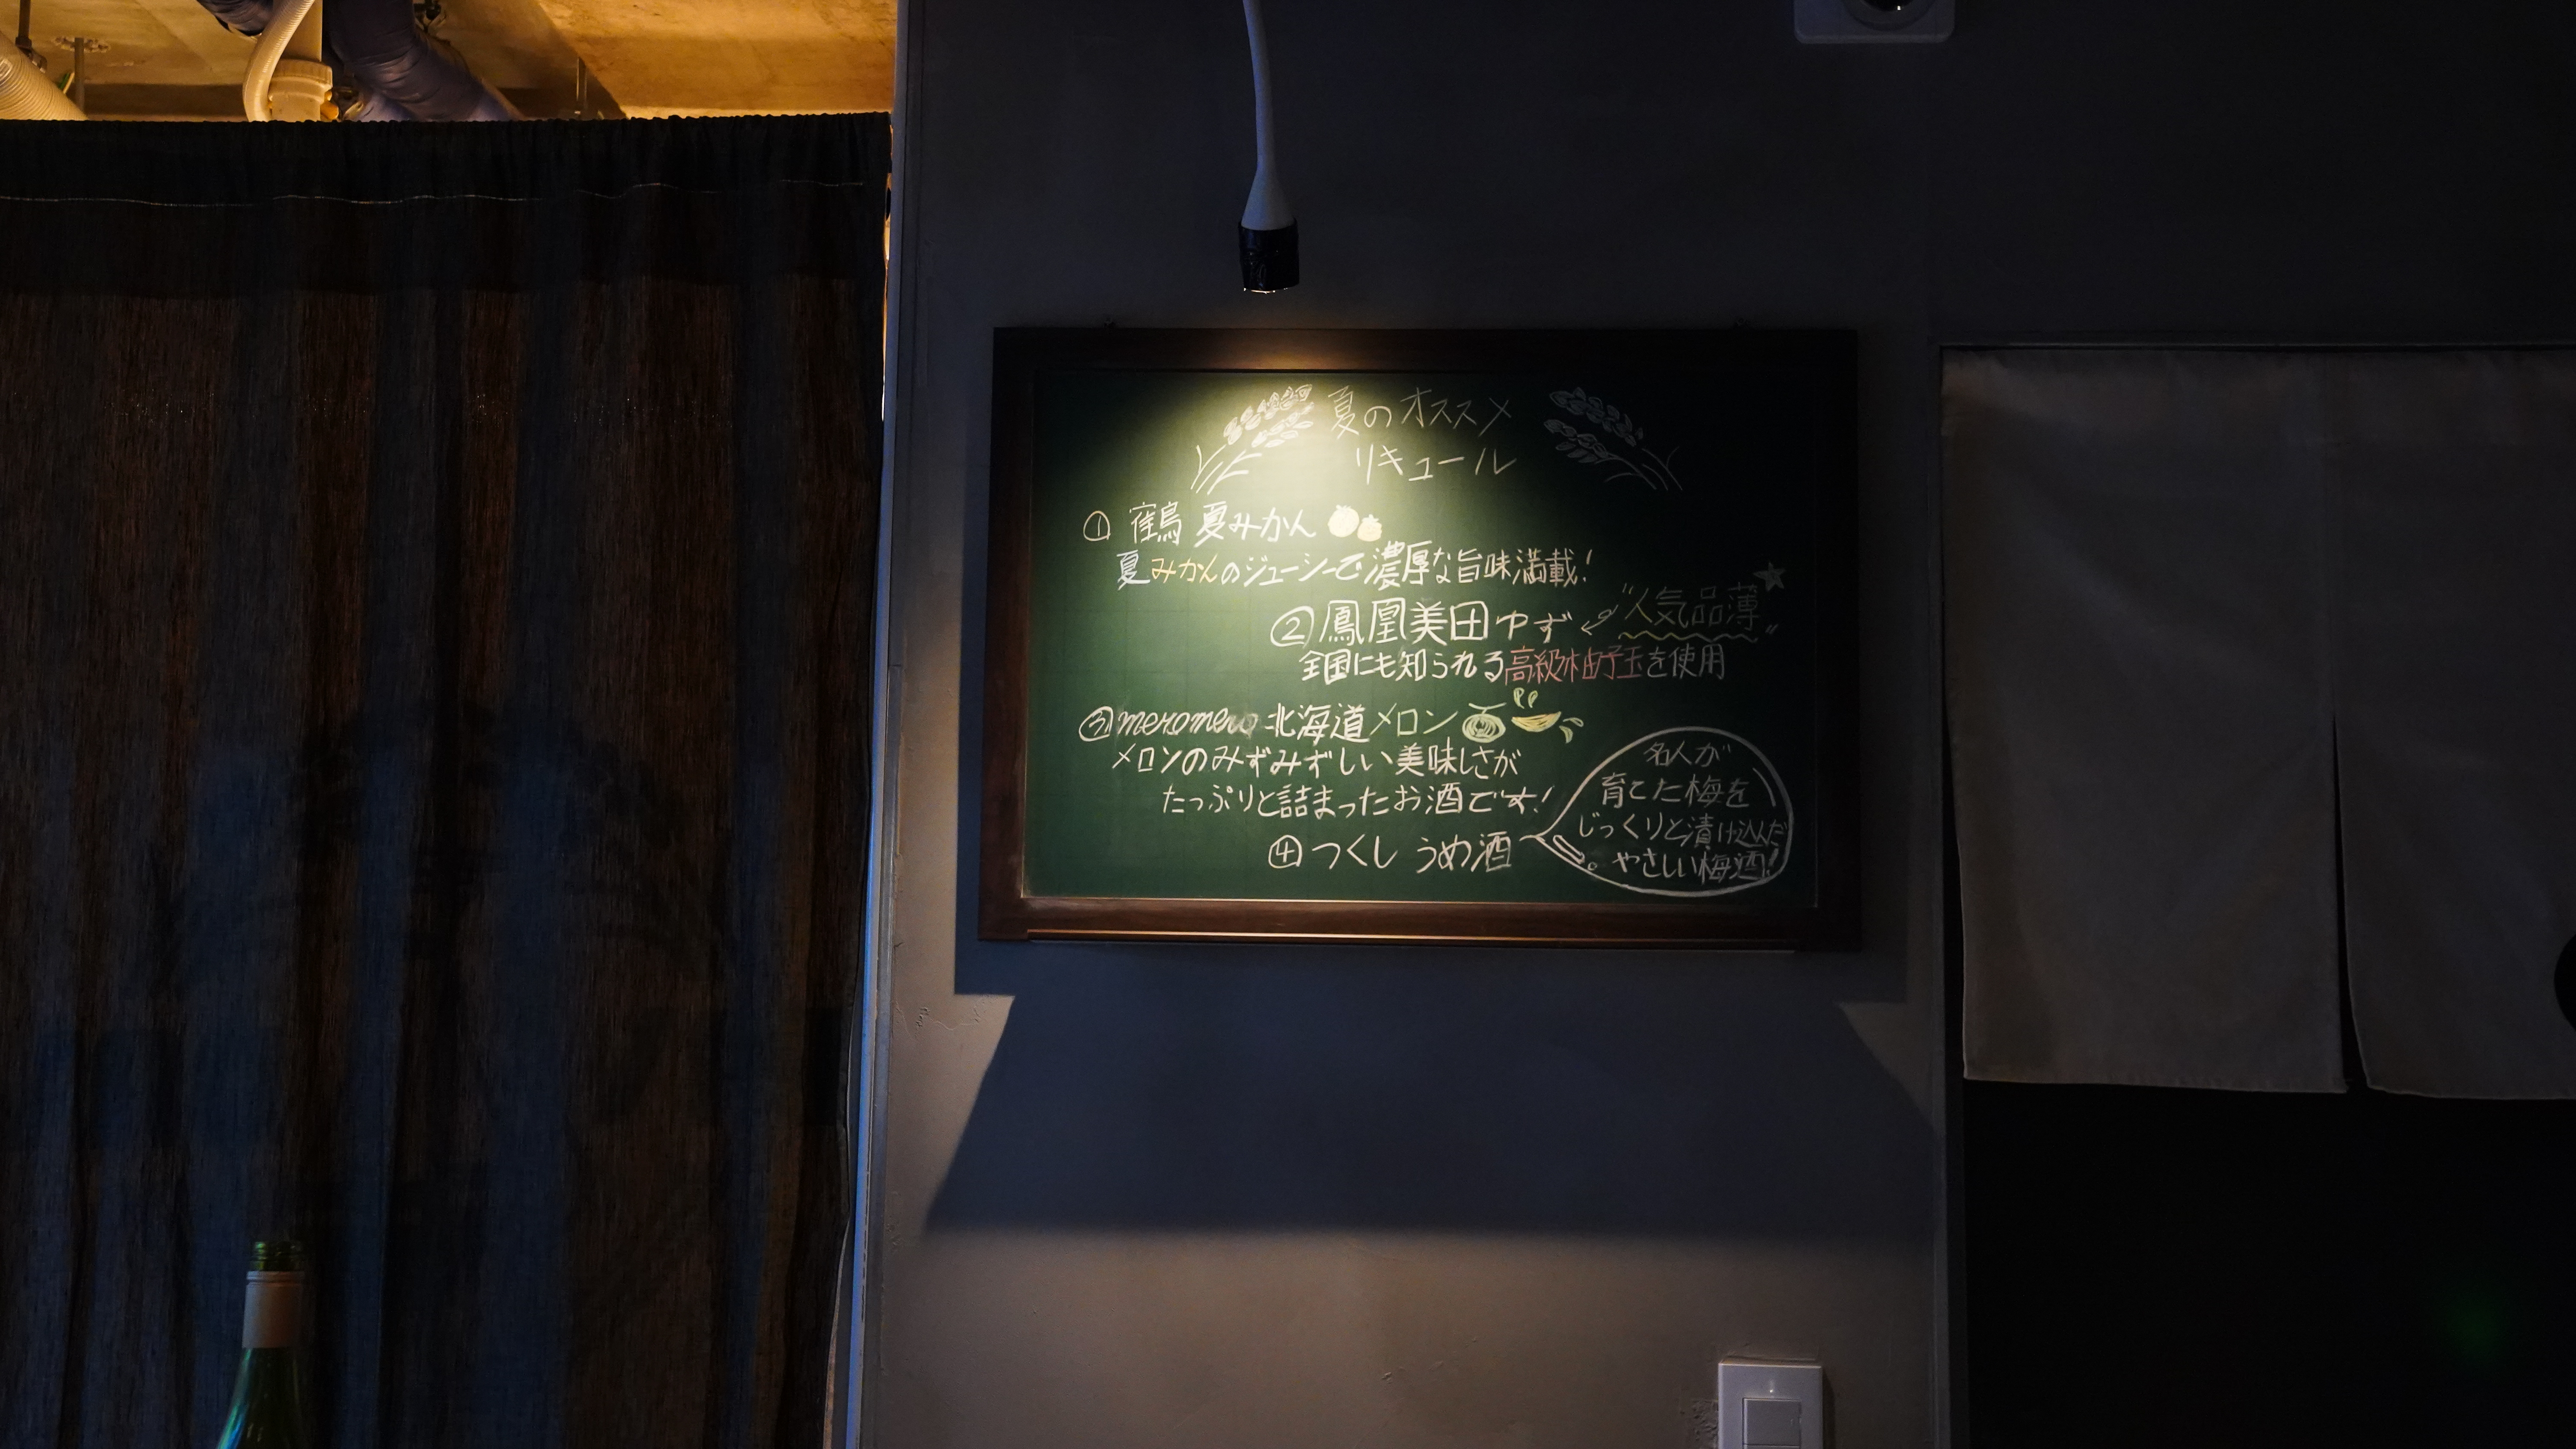 夏のオススメ
リキュール
① 鶴 夏みかん
夏みかんのジューシーで濃厚な旨味満載!
② 鳳凰美田ゆず
"人気品薄"
全国にも知られる高級柚子玉を使用
③ meromero 北海道メロン
メロンのみずみずしい美味しさが
たっぷりと詰まったお酒です!
④ つくし うめ酒
名人が
育てた梅を
じっくりと漬け込んだ
やさしい梅酒!